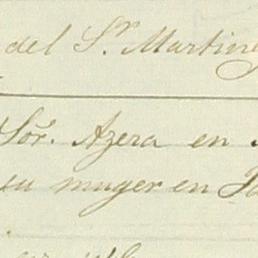 del Sr. Martin
Sör. Azera en
su muger en